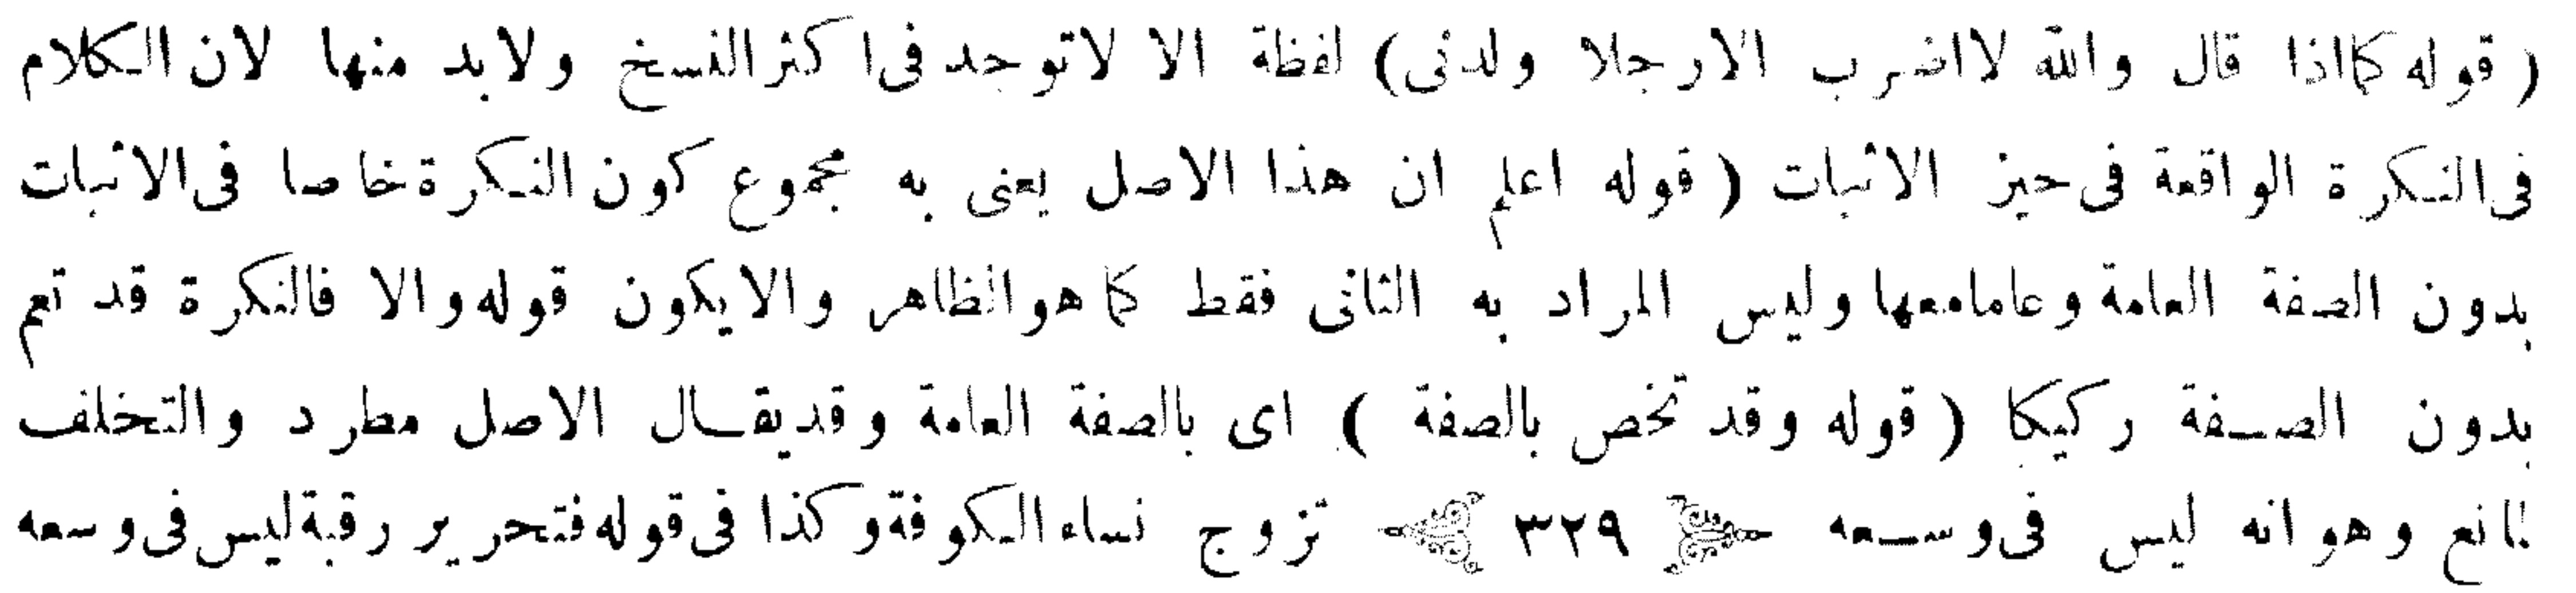 ( قوله كما اذا قال والله لا اضرب الا رجلا ولدنى ) لفظة الا لا توجد فى اكثر النسخ ولابد منها لان الكلام
فى النكرة الواقعة فى حيز الاثبات ( قوله اعلم ان هذا الاصل يعنى به مجموع كون النكرة خاصا فى الاثبات
بدون الصفة العامة وعاما معها وليس المراد به الثانى فقط كما هو الظاهر والا يكون قوله والا فالنكرة قد تعم
بدون الصفة ركيكا ( قوله وقد تخص بالصفة ) اى بالصفة العامة وقد يقال الاصل مطرد والتخلف
لمانع وهو انه ليس فى وسعه ٣٢٩ تزوج نساء الكوفة وكذا فى قوله فتحرير رقبة ليس فى وسعه